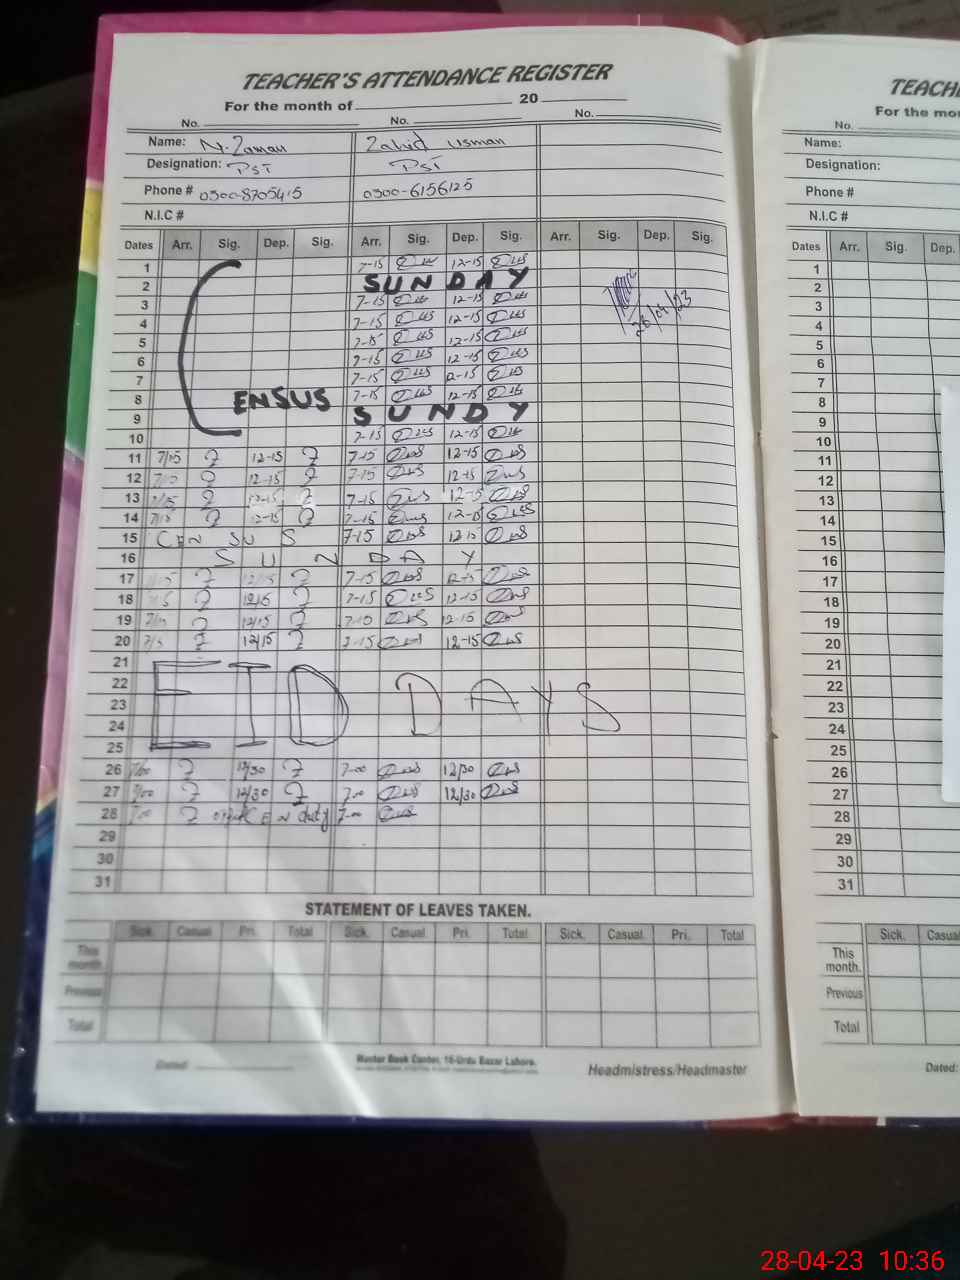 TEACHER'S ATTENDANCE REGISTER
For the month of 20
No. No. No.
Name: M. Zaman Zahid Usman
Designation: PST PST
Phone # 0300-8705415 0300-6156125
N.I.C #
Dates Arr. Sig. Dep. Sig. Arr. Sig. Dep. Sig. Arr. Sig. Dep. Sig.
1 7-15 12-15
2 SUNDAY
3 7-15 12-15
4 7-15 12-15
5 7-15 12-15
6 7-15 12-15
7 7-15 12-15
8 ENSUS 7-15 12-15
9 SUNDY
10 7-15 12-15
11 7/15 12-15 7-15 12-15
12 7/15 12-15 7-15 12-15
13 7/15 12-15 7-15 12-15
14 7/15 12-15 7-15 12-15
15 CENSUS 7-15 12-15
16 SUNDAY
17 12/15 7-15 12-15
18 7-15 12-15
19 12/15 12-15
20 12/15 7-15 12-15
21
22 EID DAYS
23
24
25
26 7/00 12/30 7-00 12/30
27 7/00 12/30 7-00 12/30
28 7-00 CEN duty 7-00
29
30
31
28/04/23
STATEMENT OF LEAVES TAKEN.
Sick. Casual Pri. Total Sick. Casual. Pri. Total Sick. Casual. Pri. Total
This month.
Previous
Total
Dated:
Master Book Center, 18-Urdu Bazar Lahore.
Headmistress/Headmaster
TEACH
For the mo
No.
Name:
Designation:
Phone #
N.I.C #
Dates Arr. Sig. Dep.
1
2
3
4
5
6
7
8
9
10
11
12
13
14
15
16
17
18
19
20
21
22
23
24
25
26
27
28
29
30
31
Sick. Casua
This month.
Previous
Total
Dated:
28-04-23 10:36